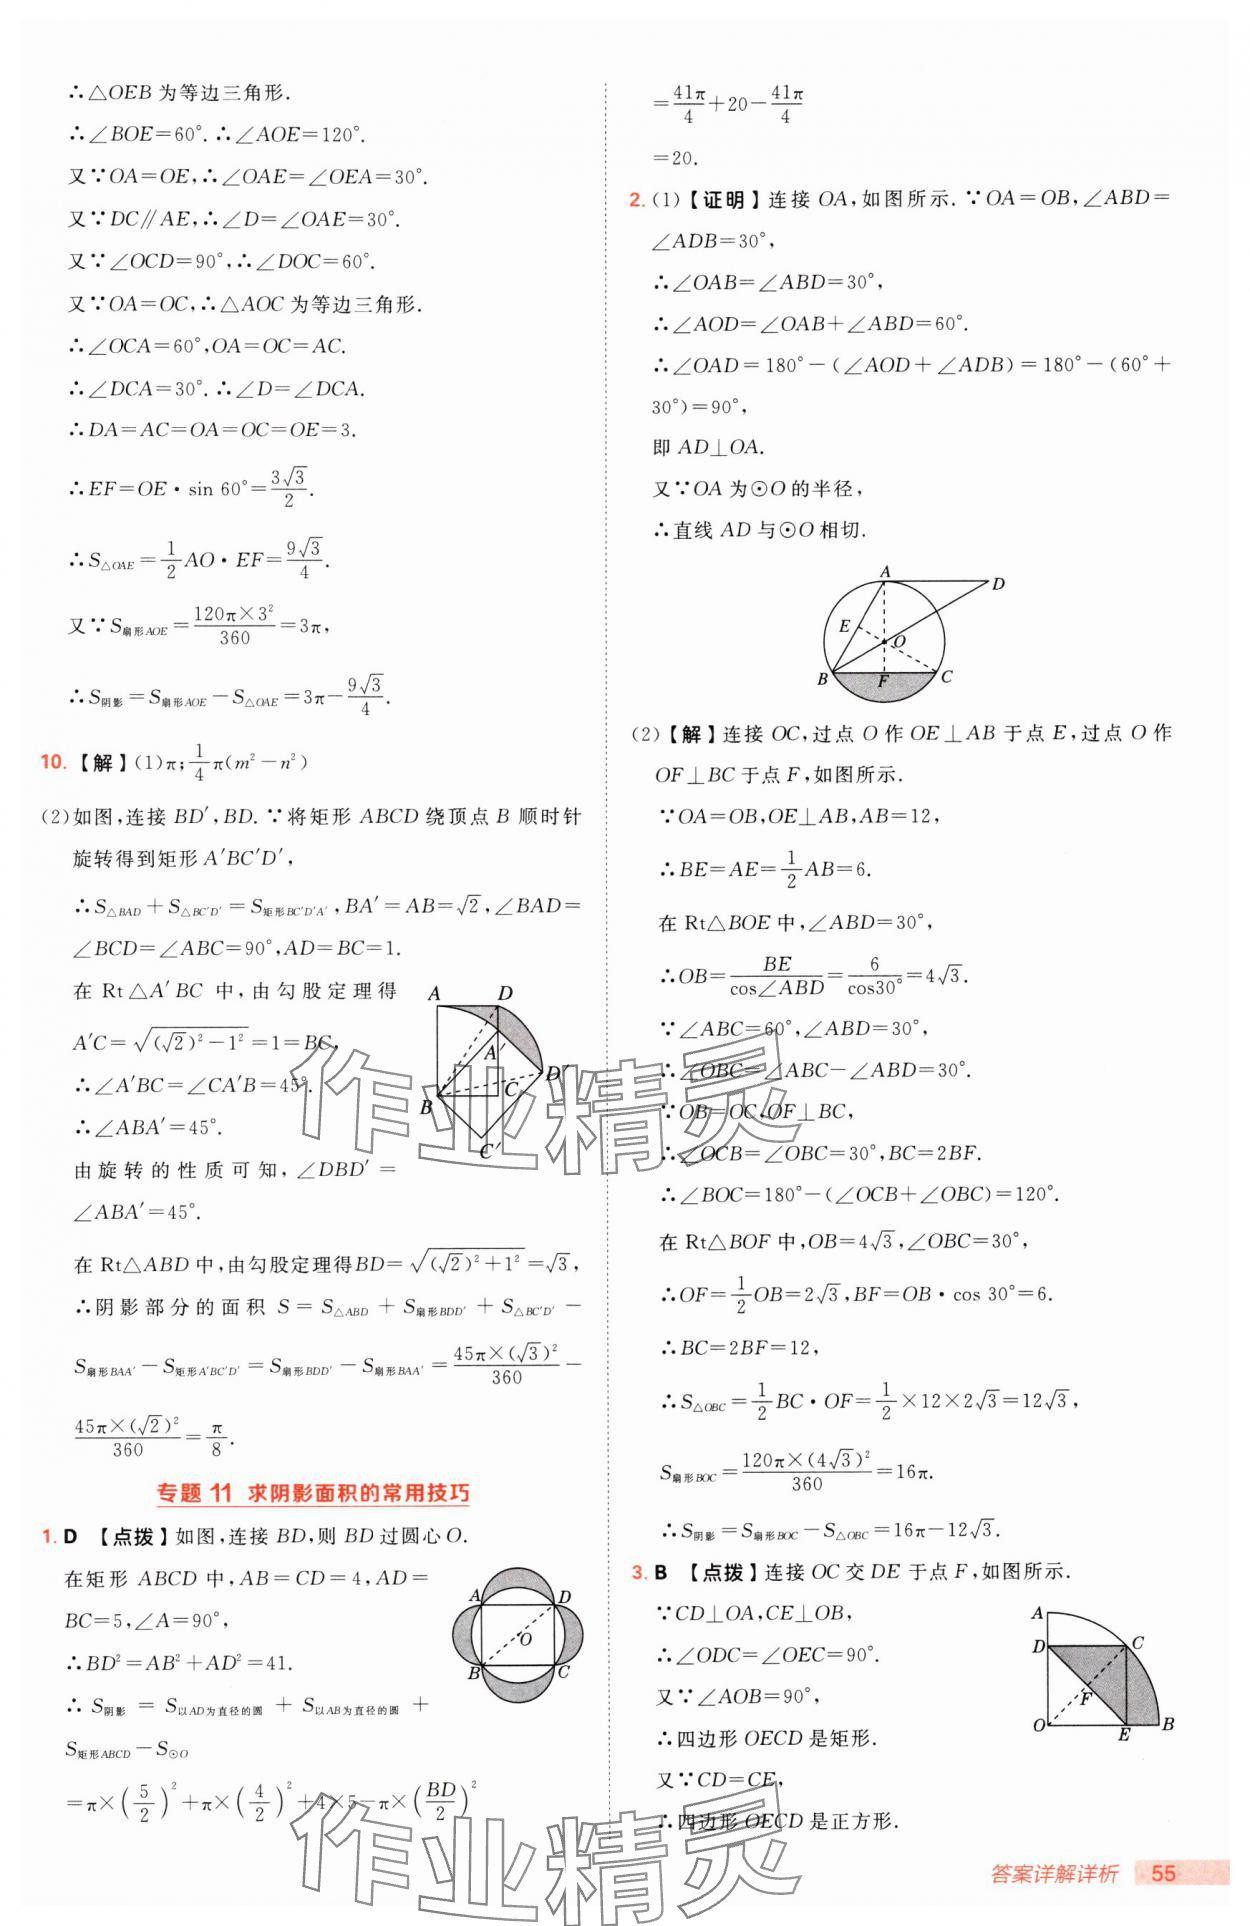 ∴△OEB 为等边三角形.
∴∠BOE=60°. ∴∠AOE=120°.
又∵OA=OE,∴∠OAE=∠OEA=30°.
又∵DC∥AE,∴∠D=∠OAE=30°.
又∵∠OCD=90°,∴∠DOC=60°.
又∵OA=OC,∴△AOC 为等边三角形.
∴∠OCA=60°,OA=OC=AC.
∴∠DCA=30°. ∴∠D=∠DCA.
∴DA=AC=OA=OC=OE=3.
∴EF=OE·sin 60°=3√3/2.
∴S△OAE=1/2AO·EF=9√3/4.
又∵S扇形AOE=120π×3²/360=3π,
∴S阴影=S扇形AOE-S△OAE=3π-9√3/4.
10.【解】(1)π;1/4π(m²-n²)
(2)如图,连接 BD′,BD. ∵将矩形 ABCD 绕顶点 B 顺时针
旋转得到矩形 A′BC′D′,
∴S△BAD+S△BC′D′=S矩形BC′D′A′,BA′=AB=√2,∠BAD=
∠BCD=∠ABC=90°,AD=BC=1.
在 Rt△A′BC 中,由勾股定理得
A′C=√((√2)²-1²)=1=BC,
∴∠A′BC=∠CA′B=45°.
∴∠ABA′=45°.
由旋转的性质可知,∠DBD′=
∠ABA′=45°.
A D A′ D′ B C C′
在 Rt△ABD 中,由勾股定理得BD=√((√2)²+1²)=√3,
∴阴影部分的面积 S=S△ABD+S扇形BDD′+S△BC′D′-
S扇形BAA′-S矩形A′BC′D′=S扇形BDD′-S扇形BAA′=45π×(√3)²/360-
45π×(√2)²/360=π/8.
专题 11 求阴影面积的常用技巧
1. D 【点拨】如图,连接 BD,则 BD 过圆心 O.
在矩形 ABCD 中,AB=CD=4,AD=
BC=5,∠A=90°,
∴BD²=AB²+AD²=41.
A D O B C
∴ S阴影 = S以AD为直径的圆 + S以AB为直径的圆 +
S矩形ABCD-S⊙O
=π×(5/2)²+π×(4/2)²+4×5-π×(BD/2)²
=41π/4+20-41π/4
=20.
2. (1)【证明】连接 OA,如图所示. ∵OA=OB,∠ABD=
∠ADB=30°,
∴∠OAB=∠ABD=30°,
∴∠AOD=∠OAB+∠ABD=60°.
∴∠OAD=180°-(∠AOD+∠ADB)=180°-(60°+
30°)=90°,
即 AD⊥OA.
又∵OA 为⊙O 的半径,
∴直线 AD 与⊙O 相切.
A D E O B F C
(2)【解】连接 OC,过点 O 作 OE⊥AB 于点 E,过点 O 作
OF⊥BC 于点 F,如图所示.
∵OA=OB,OE⊥AB,AB=12,
∴BE=AE=1/2AB=6.
在 Rt△BOE 中,∠ABD=30°,
∴OB=BE/cos∠ABD=6/cos30°=4√3.
∵∠ABC=60°,∠ABD=30°,
∴∠OBC=∠ABC-∠ABD=30°.
∵OB=OC,OF⊥BC,
∴∠OCB=∠OBC=30°,BC=2BF.
∴∠BOC=180°-(∠OCB+∠OBC)=120°.
在 Rt△BOF 中,OB=4√3,∠OBC=30°,
∴OF=1/2OB=2√3,BF=OB·cos 30°=6.
∴BC=2BF=12,
∴S△OBC=1/2BC·OF=1/2×12×2√3=12√3,
S扇形BOC=120π×(4√3)²/360=16π.
∴S阴影=S扇形BOC-S△OBC=16π-12√3.
3. B 【点拨】连接 OC 交 DE 于点 F,如图所示.
∵CD⊥OA,CE⊥OB,
∴∠ODC=∠OEC=90°.
又∵∠AOB=90°,
∴四边形 OECD 是矩形.
又∵CD=CE,
∴四边形 OECD 是正方形.
A D C F O E B
作业精灵
作业精灵
答案详解详析 55